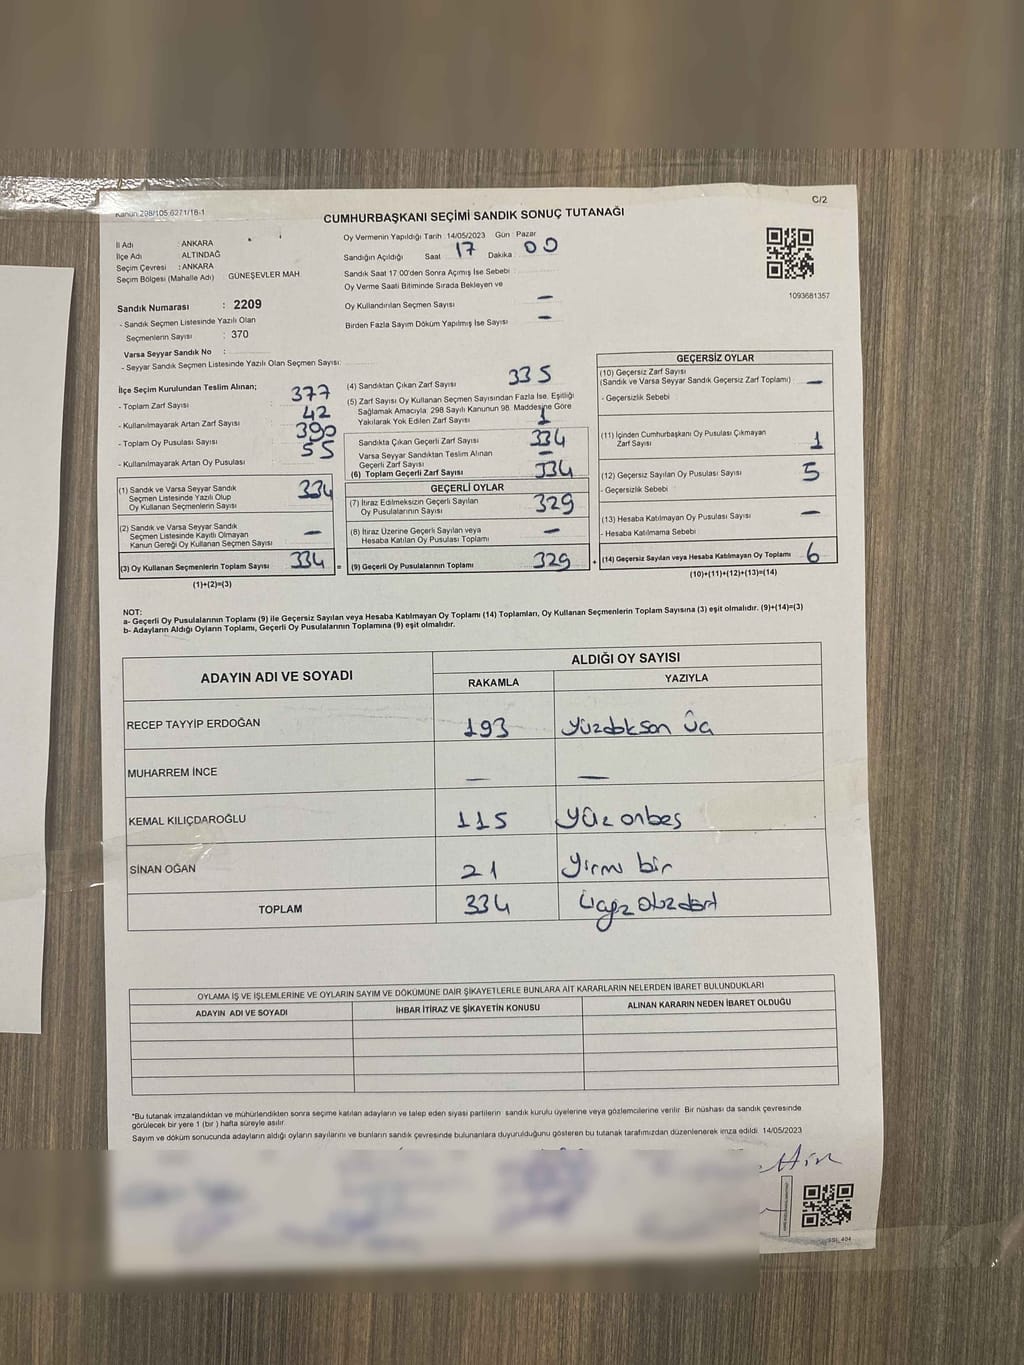 Kanun 298/105 6271/18-1
C/2
CUMHURBAŞKANI SEÇİMİ SANDIK SONUÇ TUTANAĞI
İl Adı : ANKARA
İlçe Adı : ALTINDAĞ
Seçim Çevresi : ANKARA
Seçim Bölgesi (Mahalle Adı) GÜNEŞEVLER MAH.
Oy Vermenin Yapıldığı Tarih : 14/05/2023 Gün : Pazar
Sandığın Açıldığı Saat 17 Dakika 00
Sandık Saat 17.00'den Sonra Açımış İse Sebebi :
Oy Verme Saati Bitiminde Sırada Bekleyen ve
Oy Kullandırılan Seçmen Sayısı —
Birden Fazla Sayım Döküm Yapılmış İse Sayısı —
1093681357
Sandık Numarası : 2209
- Sandık Seçmen Listesinde Yazılı Olan
Seçmenlerin Sayısı : 370
Varsa Seyyar Sandık No :
- Seyyar Sandık Seçmen Listesinde Yazılı Olan Seçmen Sayısı:
İlçe Seçim Kurulundan Teslim Alınan;
- Toplam Zarf Sayısı : 377
- Kullanılmayarak Artan Zarf Sayısı : 42
- Toplam Oy Pusulası Sayısı : 390
- Kullanılmayarak Artan Oy Pusulası 55
(1) Sandık ve Varsa Seyyar Sandık
Seçmen Listesinde Yazılı Olup
Oy Kullanan Seçmenlerin Sayısı 334
(2) Sandık ve Varsa Seyyar Sandık
Seçmen Listesinde Kayıtlı Olmayan
Kanun Gereği Oy Kullanan Seçmen Sayısı —
(3) Oy Kullanan Seçmenlerin Toplam Sayısı 334 =
(1)+(2)=(3)
(4) Sandıktan Çıkan Zarf Sayısı 335
(5) Zarf Sayısı Oy Kullanan Seçmen Sayısından Fazla İse, Eşitliği
Sağlamak Amacıyla: 298 Sayılı Kanunun 98. Maddesine Göre
Yakılarak Yok Edilen Zarf Sayısı 1
Sandıkta Çıkan Geçerli Zarf Sayısı 334
Varsa Seyyar Sandıktan Teslim Alınan
Geçerli Zarf Sayısı —
(6) Toplam Geçerli Zarf Sayısı 334
GEÇERLİ OYLAR
(7) İtiraz Edilmeksizin Geçerli Sayılan
Oy Pusulalarının Sayısı 329
(8) İtiraz Üzerine Geçerli Sayılan veya
Hesaba Katılan Oy Pusulası Toplamı —
(9) Geçerli Oy Pusulalarının Toplamı 329 +
GEÇERSİZ OYLAR
(10) Geçersiz Zarf Sayısı
(Sandık ve Varsa Seyyar Sandık Geçersiz Zarf Toplamı) —
- Geçersizlik Sebebi
(11) İçinden Cumhurbaşkanı Oy Pusulası Çıkmayan
Zarf Sayısı 1
(12) Geçersiz Sayılan Oy Pusulası Sayısı 5
- Geçersizlik Sebebi
(13) Hesaba Katılmayan Oy Pusulası Sayısı —
- Hesaba Katılmama Sebebi
(14) Geçersiz Sayılan veya Hesaba Katılmayan Oy Toplamı 6
(10)+(11)+(12)+(13)=(14)
NOT:
a- Geçerli Oy Pusulalarının Toplamı (9) ile Geçersiz Sayılan veya Hesaba Katılmayan Oy Toplamı (14) Toplamları, Oy Kullanan Seçmenlerin Toplam Sayısına (3) eşit olmalıdır. (9)+(14)=(3)
b- Adayların Aldığı Oyların Toplamı, Geçerli Oy Pusulalarının Toplamına (9) eşit olmalıdır.
ADAYIN ADI VE SOYADI
ALDIĞI OY SAYISI
RAKAMLA YAZIYLA
RECEP TAYYİP ERDOĞAN 193 yüzdoksan üç
MUHARREM İNCE — —
KEMAL KILIÇDAROĞLU 115 yüz onbeş
SİNAN OĞAN 21 yirmi bir
TOPLAM 334
OYLAMA İŞ VE İŞLEMLERİNE VE OYLARIN SAYIM VE DÖKÜMÜNE DAİR ŞİKAYETLERLE BUNLARA AİT KARARLARIN NELERDEN İBARET BULUNDUKLARI
ADAYIN ADI VE SOYADI İHBAR İTİRAZ VE ŞİKAYETİN KONUSU ALINAN KARARIN NEDEN İBARET OLDUĞU
*Bu tutanak imzalandıktan ve mühürlendikten sonra seçime katılan adayların ve talep eden siyasi partilerin sandık kurulu üyelerine veya gözlemcilerine verilir. Bir nüshası da sandık çevresinde
görülecek bir yere 1 (bir ) hafta süreyle asılır.
Sayım ve döküm sonucunda adayların aldığı oyların sayılarını ve bunların sandık çevresinde bulunanlara duyurulduğunu gösteren bu tutanak tarafımızdan düzenlenerek imza edildi. 14/05/2023